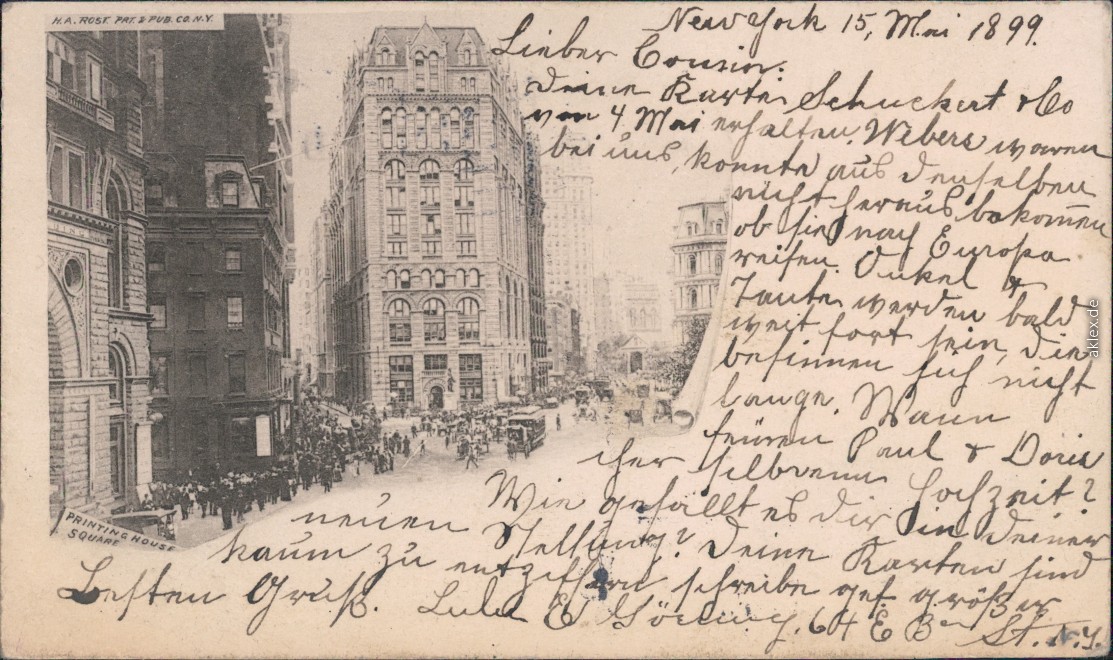 H.A. ROST. PRT. & PUB. CO. N.Y.
New York 15, Mai 1899.
Lieber Cousin.
Deine Karte Schuckert & Co
vom 4 Mai erhalten. Webers waren
bei uns, konnte aus denselben
nicht heraus bekom̅en
ob sie nach Europa
reisen. Onkel &
Tante werden bald
weit fort sein, die
besinnen sich nicht
lange. Wann
feiern Paul & Doris
ihre silberne Hochzeit?
Wie gefällt es dir in deiner
neuen Stellung? Deine Karten sind
kaum zu entziffern, schreibe gef. größer
Besten Gruß. 64 E
St. N.Y.
PRINTING HOUSE
SQUARE
aklex.de